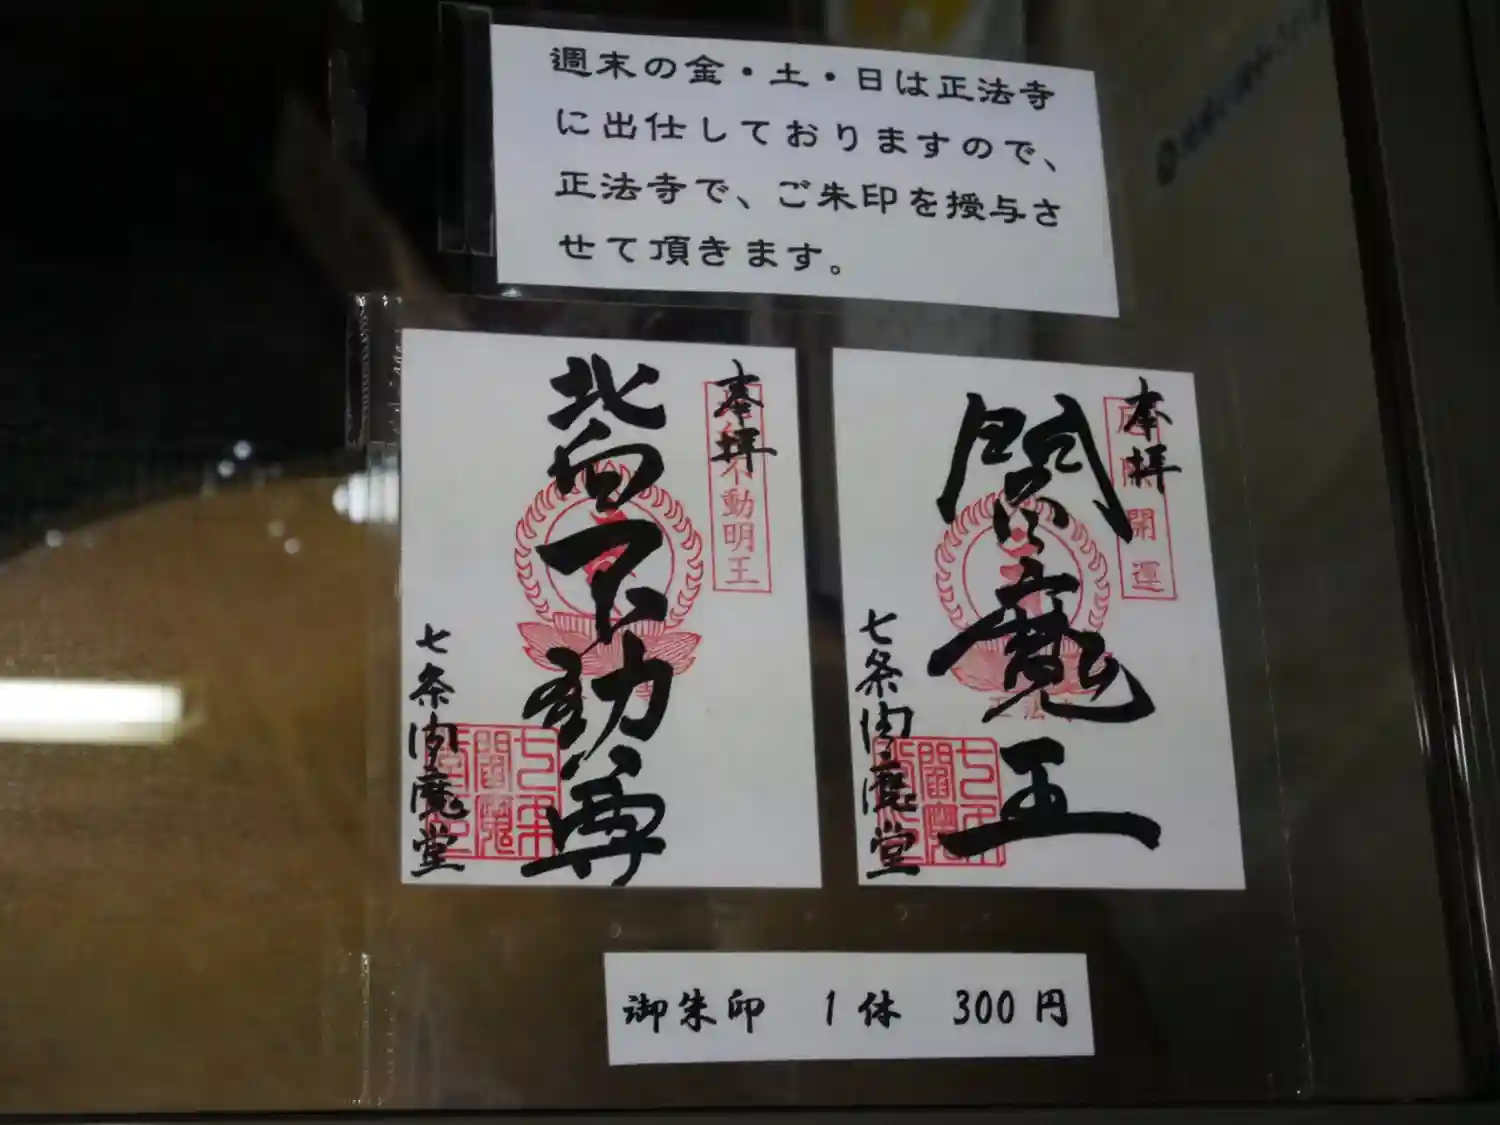 週末の金・土・日は正法寺
に出仕しておりますので、
正法寺で、ご朱印を授与さ
せて頂きます。
奉拝
不動明王
北向不動尊
七条閻魔堂
七条
閻魔
奉拝
開運
閻魔王
正法寺
七条閻魔堂
七条
閻魔
御朱印 1体 300円